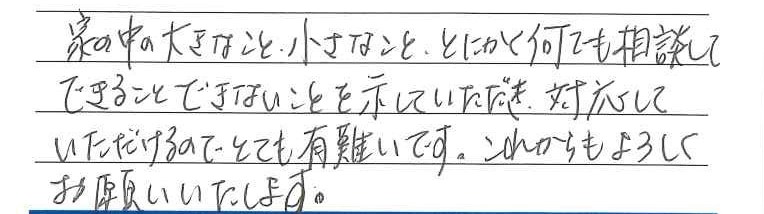 家の中の大きなこと、小さなこと、とにかく何でも相談して
できることできないことを示していただき、対応して
いただけるのでとても有難いです。これからもよろしく
お願いいたします。